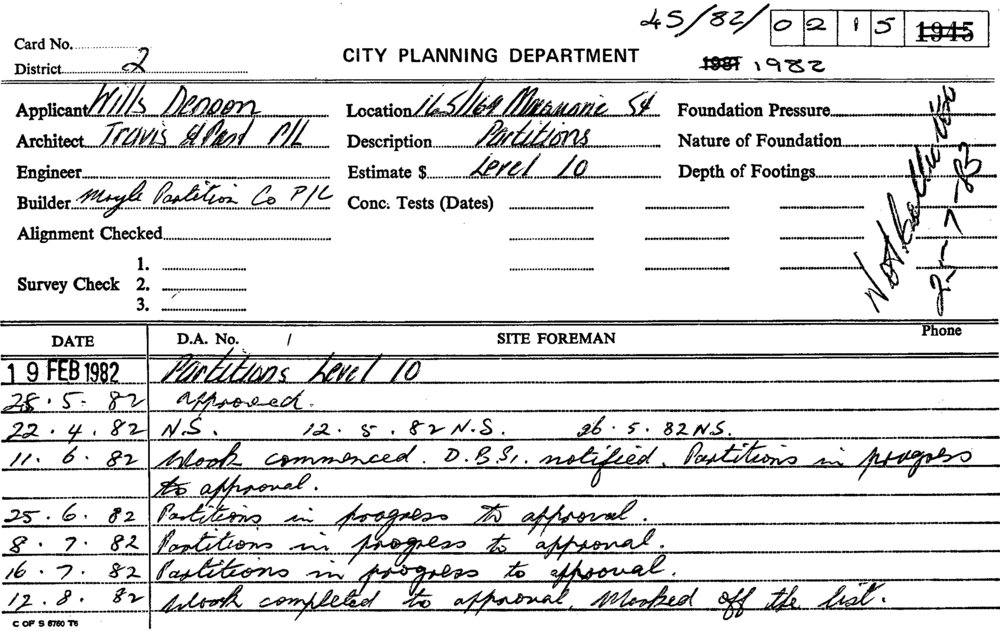 45/82/ 0 2 1 5 1945
Card No.
District 2
CITY PLANNING DEPARTMENT
1981 1982
Applicant Wills Denoon Location 165/169 St Foundation Pressure
Architect Travis & P/L Description Partitions Nature of Foundation
Engineer Estimate $ Level 10 Depth of Footings
Builder Moyle Partition Co P/L Conc. Tests (Dates)
Alignment Checked
1.
Survey Check 2.
3.
Not
25-7-83
Phone
DATE D.A. No. / SITE FOREMAN
19 FEB 1982 Partitions Level 10
28.5.82 approved.
22.4.82 N.S. 12.5.82 N.S. 26.5.82 N.S.
11.6.82 Work commenced. D.B.S. notified. Partitions in progress
to approval.
25.6.82 Partitions in progress to approval.
8.7.82 Partitions in progress to approval.
16.7.82 Partitions in progress to approval.
12.8.82 Work completed to approval. Marked off the list.
C OF S 6760 T6